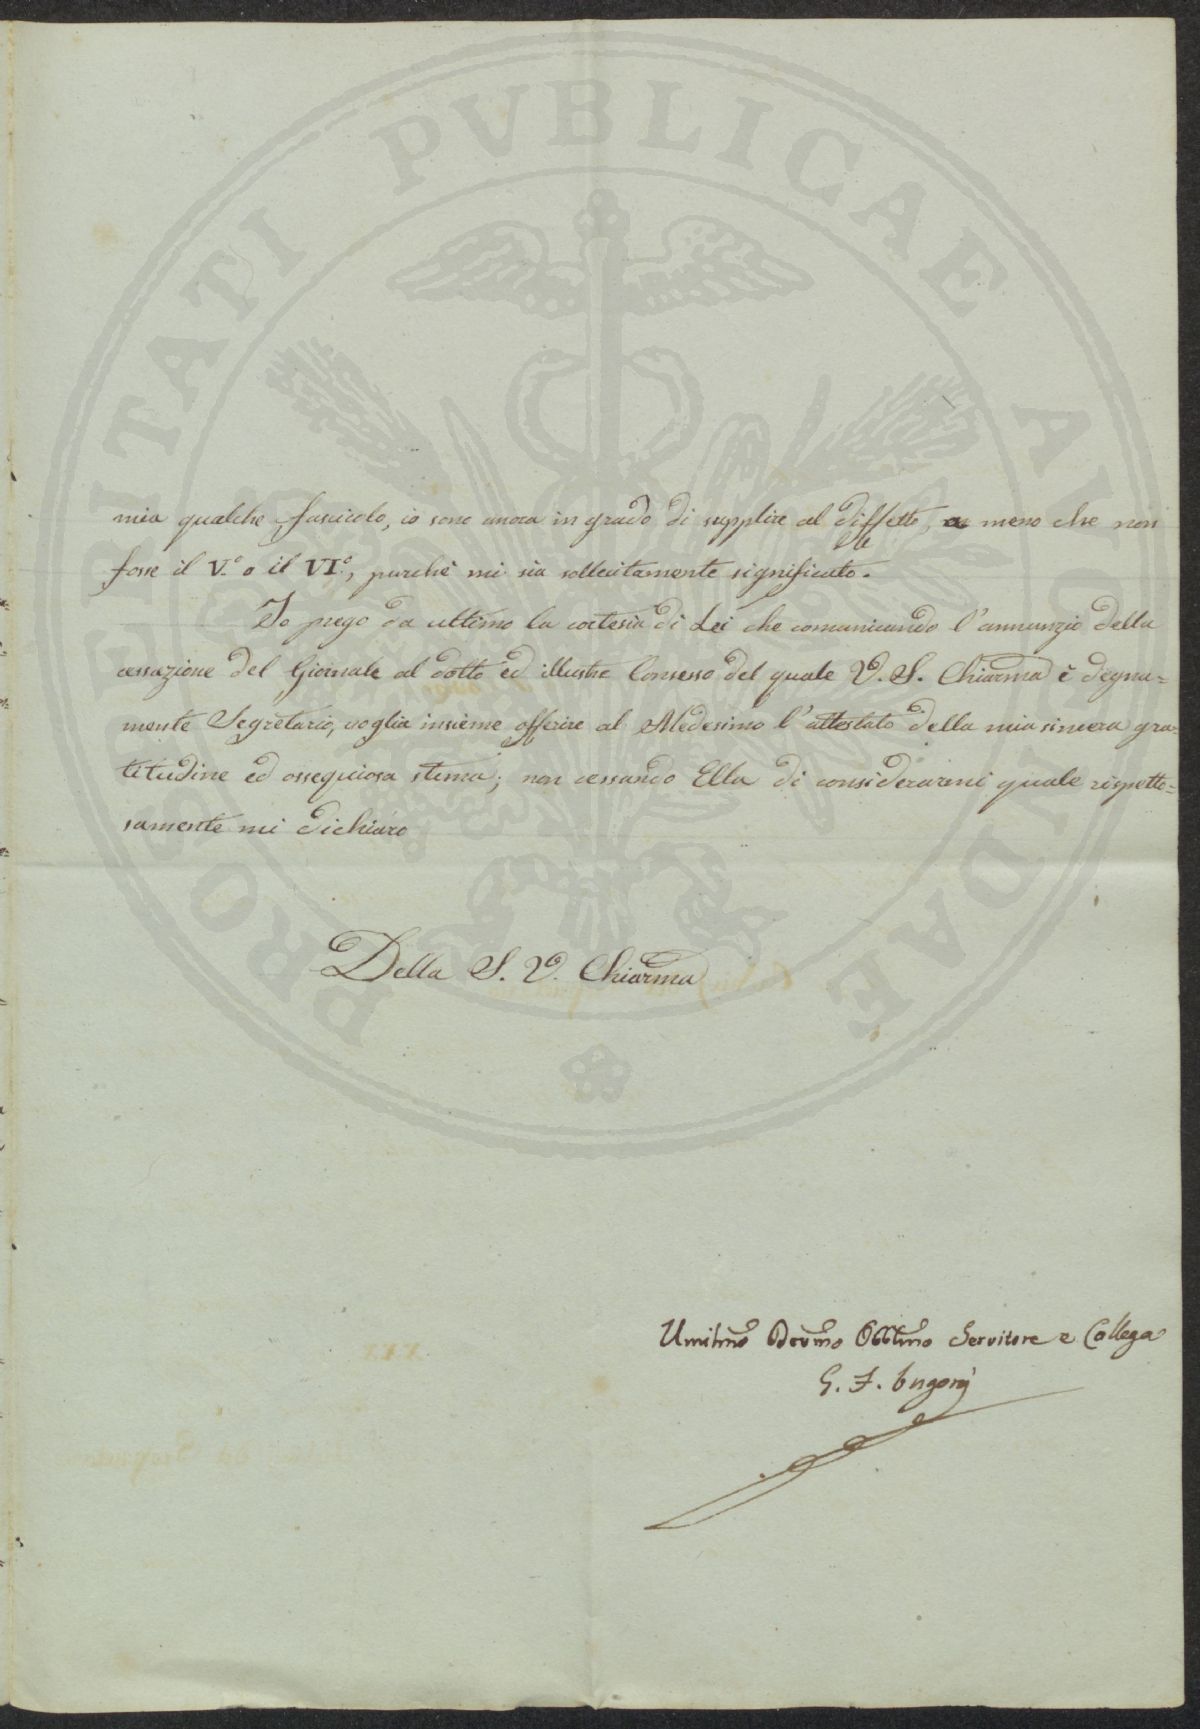 PROSPERITATI PVBLICAE AVGENDAE
mia qualche fascicolo, io sono ancora in grado di supplire al diffetto, a meno che non
fosse il V.º o il VI.º, purchè mi sia sollecitamente significato.
Io prego da ultimo la cortesia di Lei che comunicando l'annunzio della
cessazione del Giornale al dotto ed illustre Consesso del quale V. S. Chiarma è degna=
mente Segretario, voglia insieme offerire al Medesimo l'attestato della mia sincera gra=
titudine ed ossequiosa stima; non cessando Ella di considerarmi quale rispetto=
samente mi dichiaro
Della S. V. Chiarma
Umilmo Devmo Obblmo Servitore e Collega
G. F.